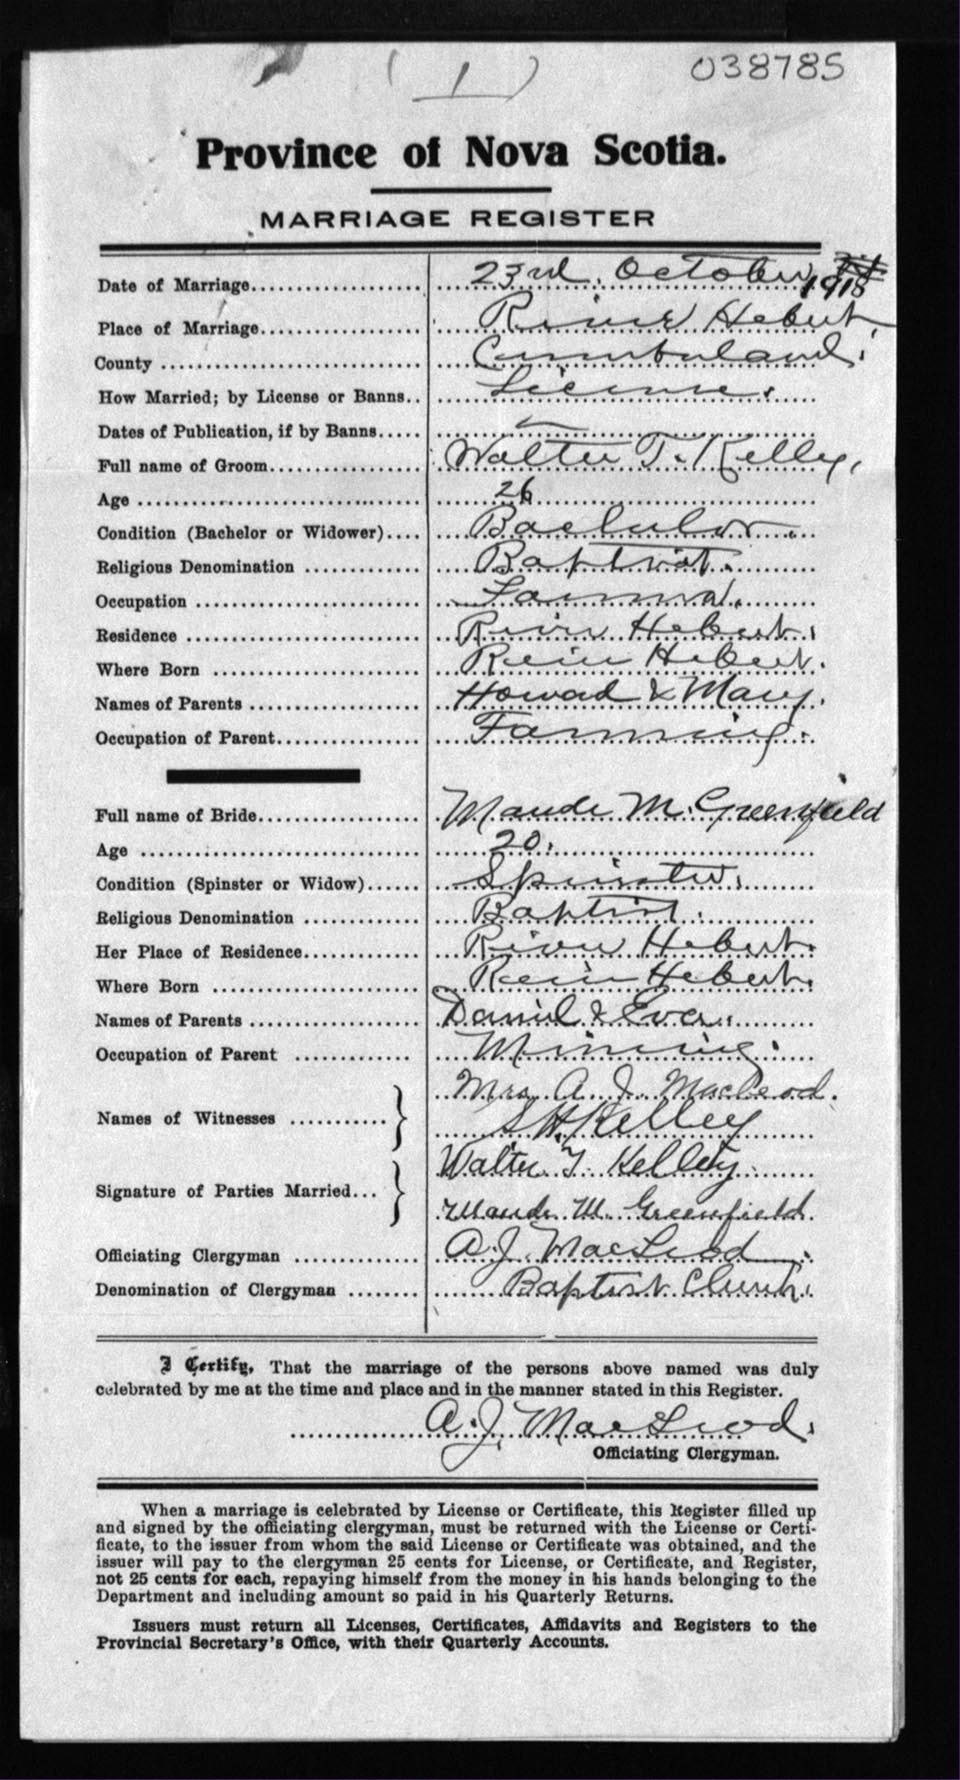 ( 1 )
038785
Province of Nova Scotia.
MARRIAGE REGISTER
Date of Marriage.................... 23rd. October, 1918
Place of Marriage.................. River Hebert,
County ............................. Cumberland.
How Married; by License or Banns.. License.
Dates of Publication, if by Banns..... —
Full name of Groom.................. Walter T. Kelley,
Age ................................ 26
Condition (Bachelor or Widower).... Bachelor.
Religious Denomination ............. Baptist.
Occupation ......................... Farmer.
Residence .......................... River Hebert.
Where Born ........................ River Hebert.
Names of Parents ................... Howard & Mary.
Occupation of Parent................ Farming.
Full name of Bride.................. Maude M. Greenfield
Age ................................ 20.
Condition (Spinster or Widow)...... Spinster.
Religious Denomination ............. Baptist.
Her Place of Residence............. River Hebert.
Where Born ........................ River Hebert.
Names of Parents ................... Daniel & Eva.
Occupation of Parent ............. Mining.
Mrs. A. J. MacLeod.
Names of Witnesses ........... } S H Kelley
Walter T Kelley.
Signature of Parties Married... }
Maude M. Greenfield.
Officiating Clergyman .............. A. J. MacLeod.
Denomination of Clergyman ........ Baptist Church.
I Certify, That the marriage of the persons above named was duly
celebrated by me at the time and place and in the manner stated in this Register.
A. J. MacLeod.
Officiating Clergyman.
When a marriage is celebrated by License or Certificate, this Register filled up
and signed by the officiating clergyman, must be returned with the License or Certi-
ficate, to the issuer from whom the said License or Certificate was obtained, and the
issuer will pay to the clergyman 25 cents for License, or Certificate, and Register,
not 25 cents for each, repaying himself from the money in his hands belonging to the
Department and including amount so paid in his Quarterly Returns.
Issuers must return all Licenses, Certificates, Affidavits and Registers to the
Provincial Secretary's Office, with their Quarterly Accounts.